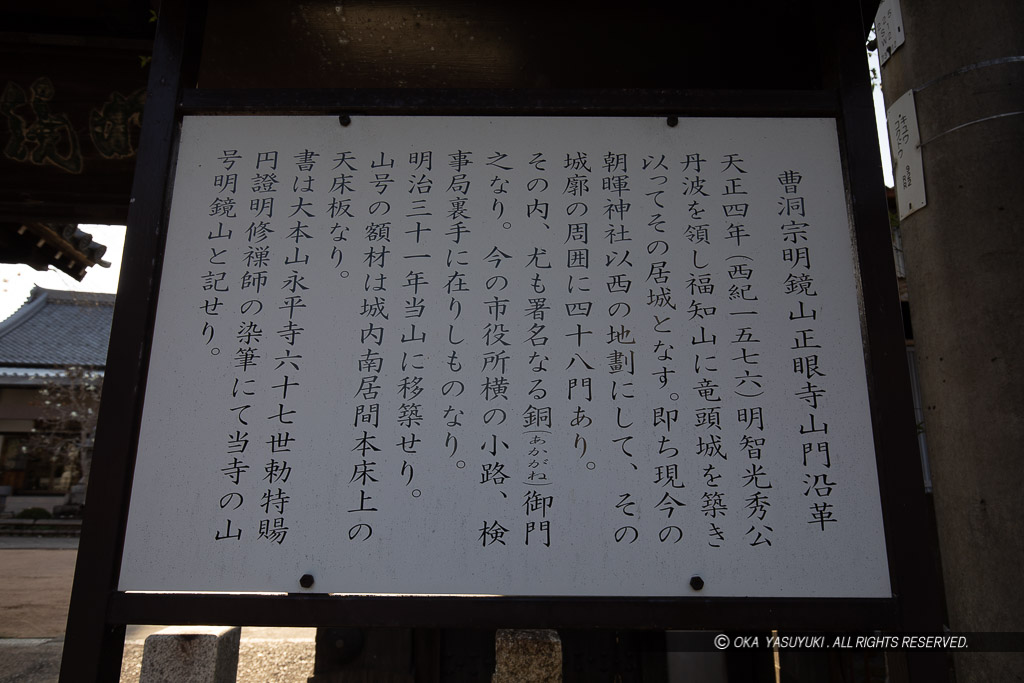 曹洞宗明鏡山正眼寺山門沿革
天正四年(西紀一五七六)明智光秀公
丹波を領し福知山に竜頭城を築き
以ってその居城となす。即ち現今の
朝暉神社以西の地劃にして、その
城廓の周囲に四十八門あり。
その内、尤も署名なる銅(あかがね)御門
之なり。今の市役所横の小路、検
事局裏手に在りしものなり。
明治三十一年当山に移築せり。
山号の額材は城内南居間本床上の
天床板なり。
書は大本山永平寺六十七世勅特賜
円證明修禅師の染筆にて当寺の山
号明鏡山と記せり。
© OKA YASUYUKI. ALL RIGHTS RESERVED.